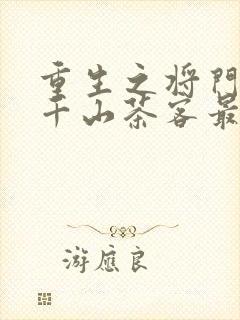 重生之将门
千山茶客最
游应良